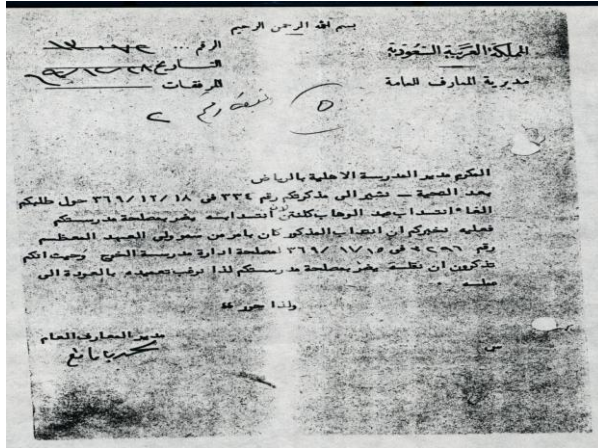 بسم الله الرحمن الرحيم
المملكة العربية السعودية
مديرية المعارف العامة
الرقم
التاريخ ٢٨/١٢/٦٩
المرفقات
المكرم مدير المدرسة الاهلية بالرياض
بعد التحية – نشير الى مذكرتكم رقم ٣٣٤ في ٣٦٩/١٢/١٨ حول طلبكم
الغاء انتداب عبد الوهاب انتدابه يخر بمصلحة مدرستكم
فعليه نخبركم ان انتداب المذكور كان بامر من سمو ولي العهد المعظم
رقم في لمصلحة ادارة مدرسة الخرج وحيث انكم
تذكرون ان نقله يخر بمصلحة مدرستكم لذا نرغب تعميده بالعودة الى
عمله ٠
ولذا حرر ،،
مدير المعارف العام